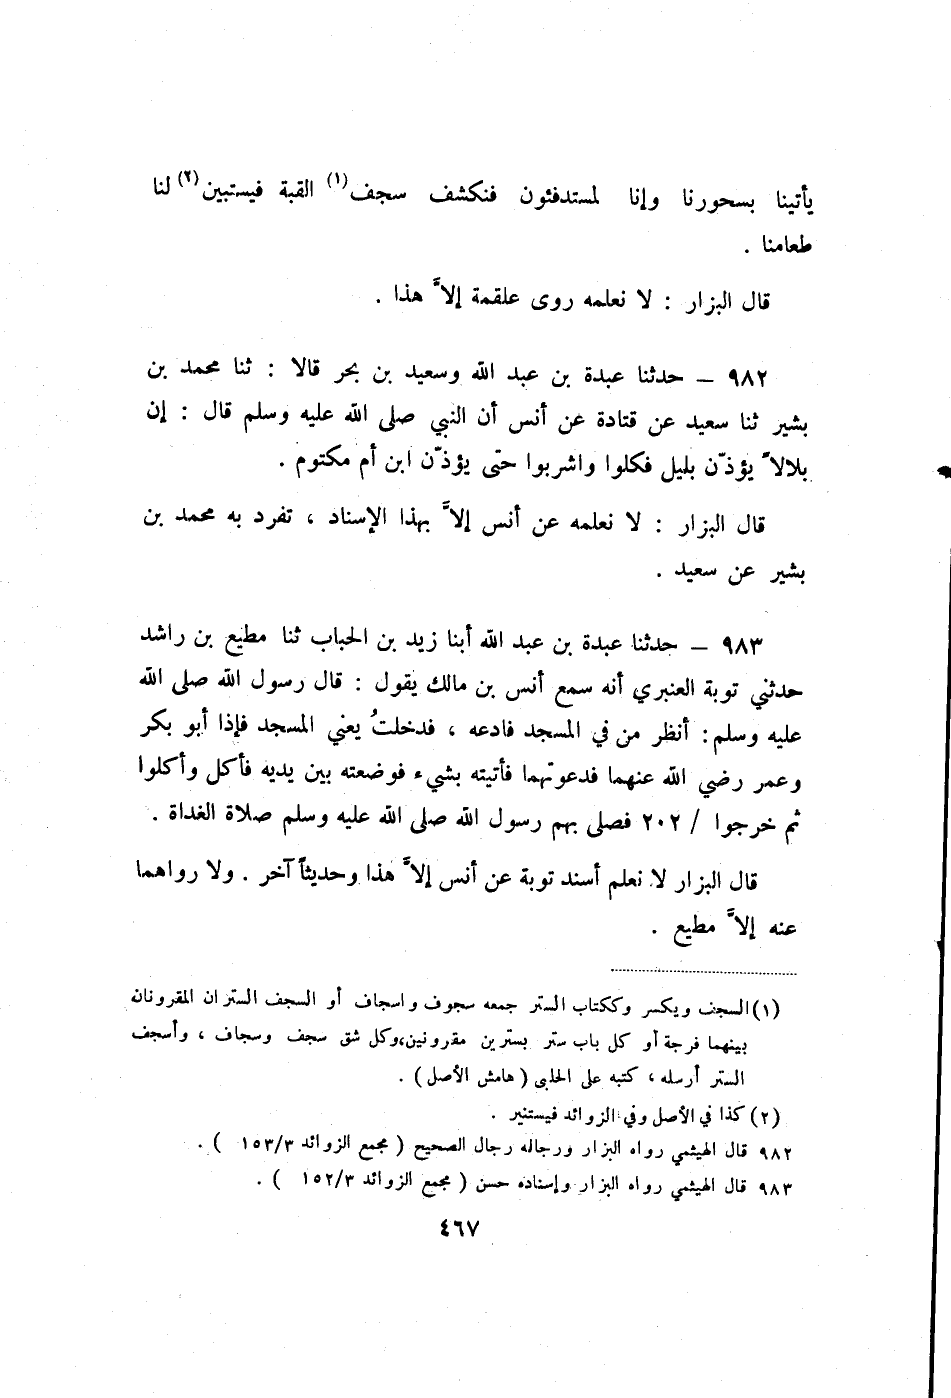 يأتينا بسحورنا وإنا لمستدفئون فنكشف سجف(١) القبة فيستبين(٢) لنا
طعامنا .
قال البزار : لا نعلمه روى علقمة إلاَّ هذا .
٩٨٢ – حدثنا عبدة بن عبد الله وسعيد بن بحر قالا : ثنا محمد بن
بشير ثنا سعيد عن قتادة عن أنس أن النبي صلى الله عليه وسلم قال : إن
بلالاً يؤذّن بليل فكلوا واشربوا حتى يؤذّن ابن أم مكتوم .
قال البزار : لا نعلمه عن أنس إلاَّ بهذا الإسناد ، تفرد به محمد بن
بشير عن سعيد .
٩٨٣ – حدثنا عبدة بن عبد الله أبنا زيد بن الحباب ثنا مطيع بن راشد
حدثني توبة العنبري أنه سمع أنس بن مالك يقول : قال رسول الله صلى الله
عليه وسلم : أنظر من في المسجد فادعه ، فدخلتُ يعني المسجد فإذا أبو بكر
وعمر رضي الله عنهما فدعوتهما فأتيته بشيء فوضعته بين يديه فأكل وأكلوا
ثم خرجوا / ٢٠٢ فصلى بهم رسول الله صلى الله عليه وسلم صلاة الغداة .
قال البزار لا نعلم أسند توبة عن أنس إلاَّ هذا وحديثاً آخر . ولا رواهما
عنه إلاَّ مطيع .
(١) السجف ويكسر وككتاب الستر جمعه سجوف واسجاف أو السجف الستران المقرونان
بينهما فرجة أو كل باب ستر بسترين مقرونين،وكل شق سجف وسجاف ، وأسجف
الستر أرسله ، كتبه على الحلبى ( هامش الأصل ) .
(٢) كذا في الأصل وفي الزوائد فيستنير .
٩٨٢ قال الهيثمي رواه البزار ورجاله رجال الصحيح ( مجمع الزوائد ١٥٣/٣ ) .
٩٨٣ قال الهيثمي رواه البزار وإسناده حسن ( مجمع الزوائد ١٥٢/٣ ) .
٤٦٧